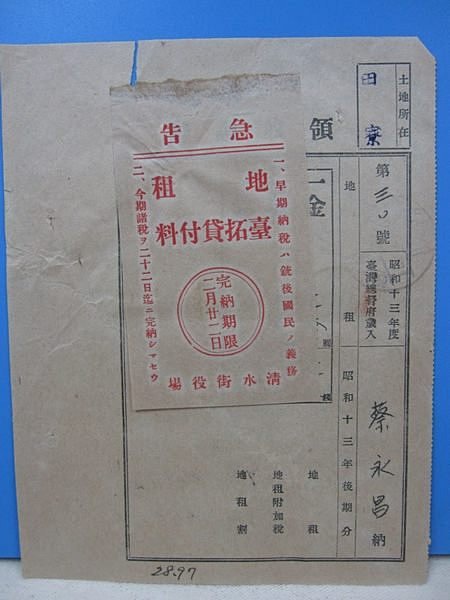 土地所在
田寮
第三〇號
昭和十三年度
臺灣總督府歲入
蔡永昌納
地租
昭和十三年後期分
領
一金
地租
地租附加稅
地租割
急告
一、早期納稅ハ銃後國民ノ義務
地租
臺拓貸付料
完納期限
二月廿二日
二、今期諸稅ヲ二十二日迄ニ完納シマセウ
清水街役場
28.97